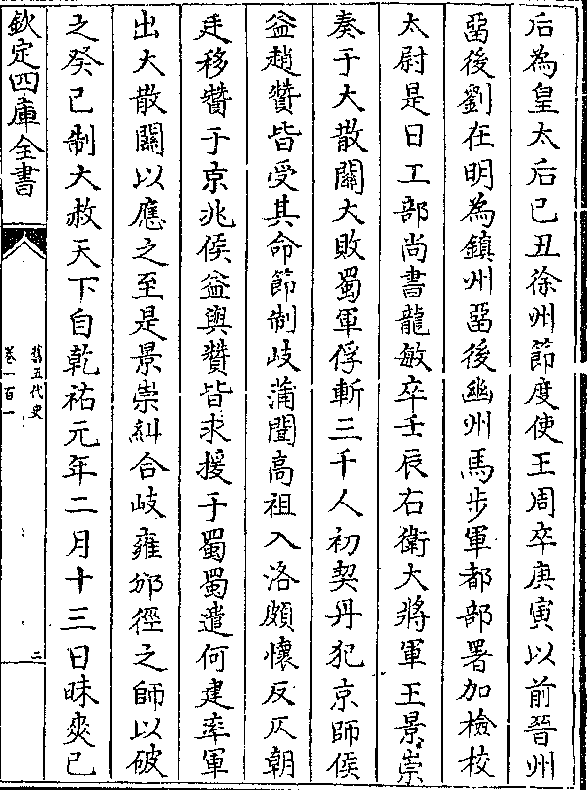 后為皇太后己丑徐州節度使王周卒庚寅以前晉州
留後劉在明為鎮州留後幽州馬步軍都部署加檢校
太尉是日工部尚書龍敏卒壬辰右衛大將軍王景崇
奏于大散關大敗蜀軍俘斬三千人初契丹犯京師侯
益趙贊皆受其命節制岐蒲聞高祖入洛頗懷反仄朝
廷移贊于京兆侯益與贊皆求援于蜀蜀遣何建率軍
出大散關以應之至是景崇糾合岐雍邠徑之師以破
之癸巳制大赦天下自乾祐元年二月十三日昧爽已
欽定四庫全書
舊五代史
卷一百一
二